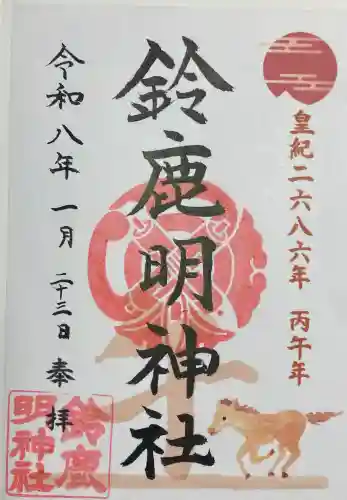 皇紀二六八六年 丙午年
鈴鹿明神社
令和八年 一月 二十三日 奉拝
鈴鹿
明神社